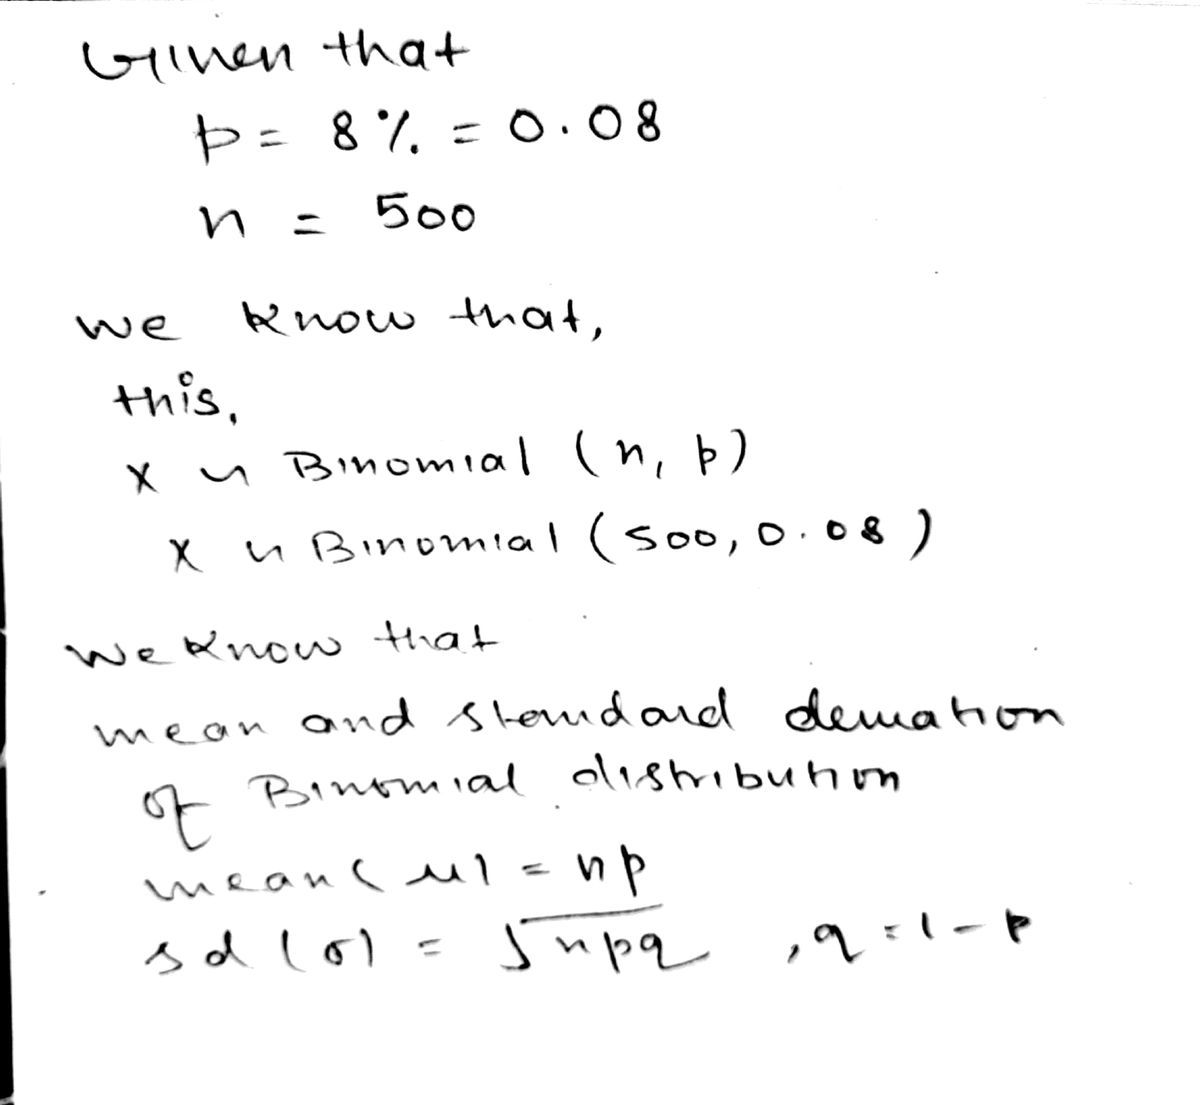 Given that
p = 8% = 0.08
n = 500
we know that,
this,
X ~ Binomial (n, p)
X ~ Binomial (500, 0.08)
we know that
mean and standard deviation
of Binomial distribution
mean (μ) = np
sd (σ) = √npq , q = 1 - p